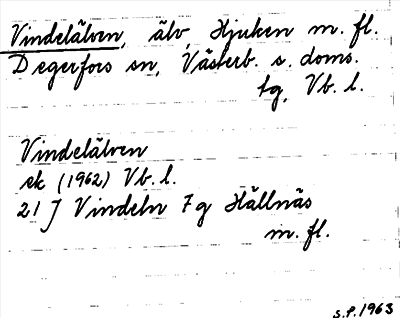 Vindelälven, älv, Hjuken m. fl.
Degerfors sn, Västerb. s. doms.
tg, Vb. l.
Vindelälven
ek (1962) Vb. l.
21 J Vindeln 7 g Hällnäs
m. fl.
S.P. 1963